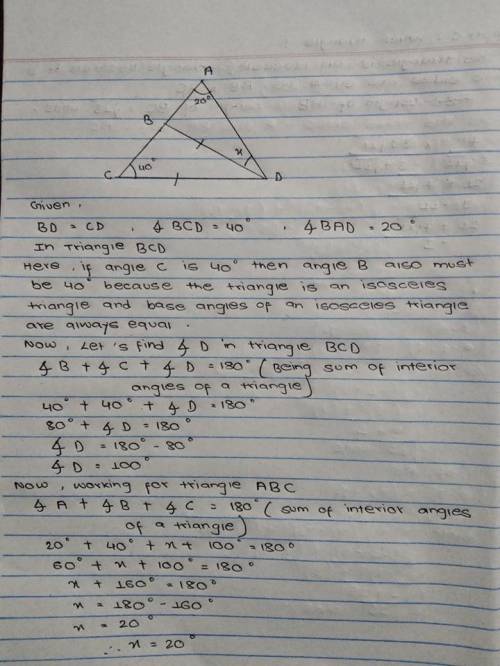 A
20°
B
x
C
40°
D
Given,
BD = CD , ∡ BCD = 40° , ∡ BAD = 20°
In Triangle BCD
Here, if angle C is 40° then angle B also must
be 40° because the triangle is an isosceles
triangle and base angles of an isosceles triangle
are always equal.
Now, Let's find ∡ D in triangle BCD
∡ B + ∡ C + ∡ D = 180° (Being sum of interior
angles of a triangle)
40° + 40° + ∡ D = 180°
80° + ∡ D = 180°
∡ D = 180° - 80°
∡ D = 100°
Now, working for triangle ABC
∡ A + ∡ B + ∡ C = 180° (sum of interior angles
of a triangle)
20° + 40° + x + 100° = 180°
60° + x + 100° = 180°
x + 160° = 180°
x = 180° - 160°
x = 20°
∴ x = 20°